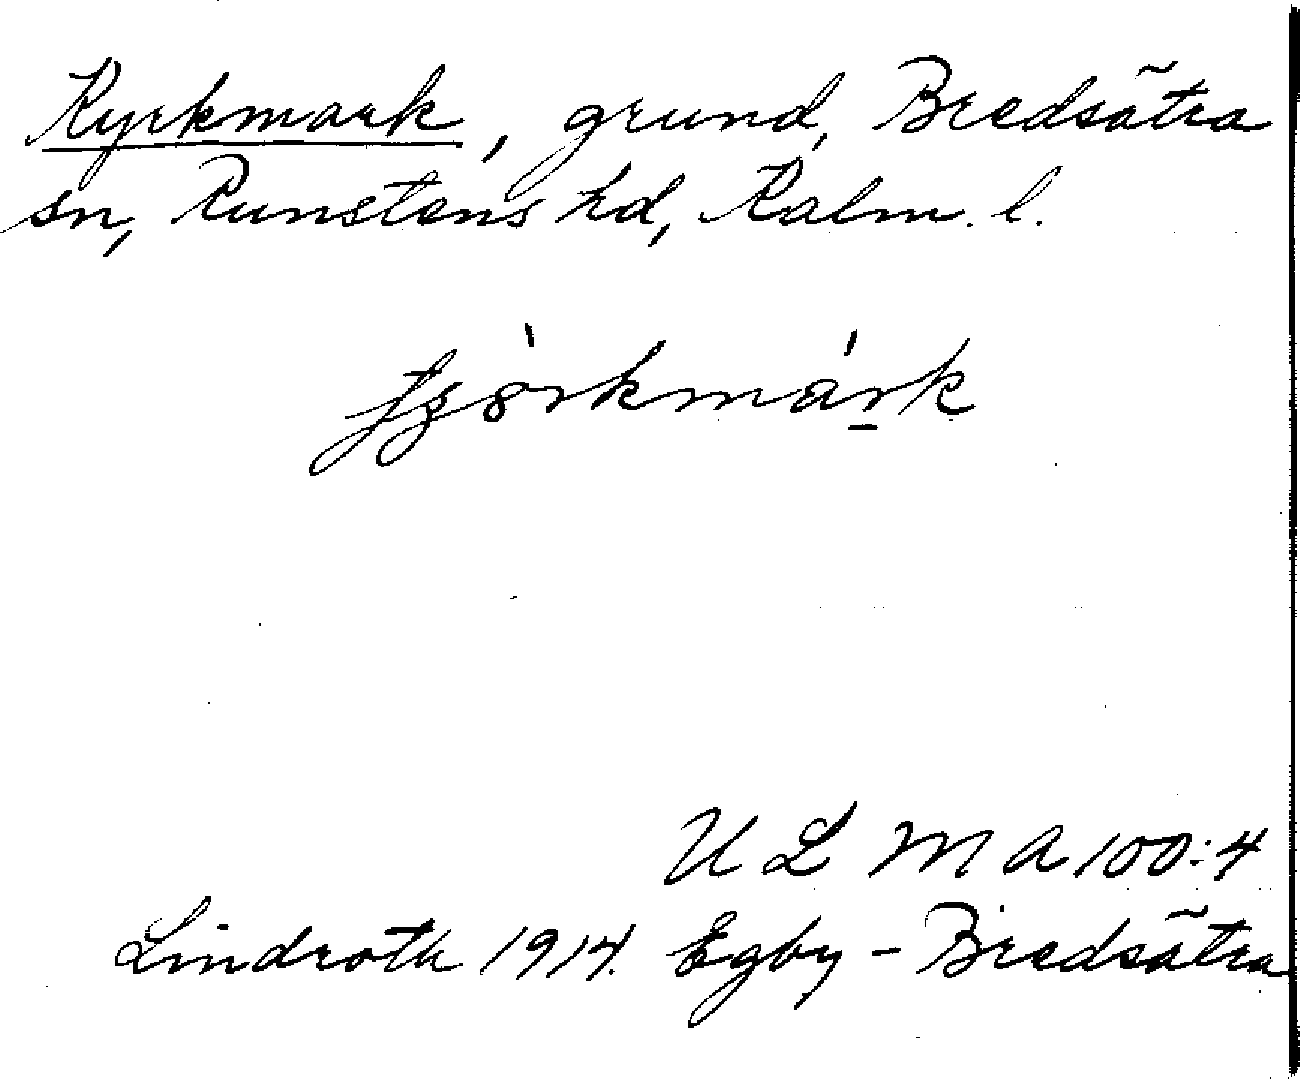 Kyrkmark, grund, Bredsätra
sn, Runstens hd, Kalm. l.
U L M A 100:4
Lindroth 1914. Egby - Bredsätra